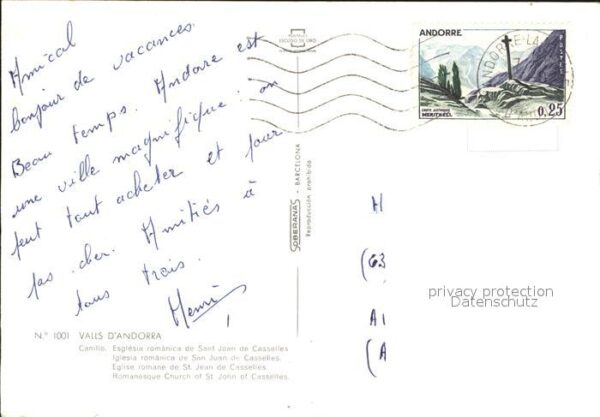 Amical
bonjour de vacances.
Beau temps. Andore est
une ville magnifique. on
peut tout acheter et pour
pas cher. Amitiés à
tous trois.
Henri
N.º 1001 VALLS D'ANDORRA
Canillo. Església romànica de Sant Joan de Casselles
Iglesia románica de San Juan de Casselles.
Eglise romane de St. Jean de Casselles
Romanesque Church of St John of Casselles.
ESCUDO DE ORO
SOBERANAS - BARCELONA
Reproducción prohibida
ANDORRE
POSTES
CROIX GOTHIQUE
MERITXELL
0,25
ANDORRE-LA
H
(63
A1
(A
privacy protection
Datenschutz